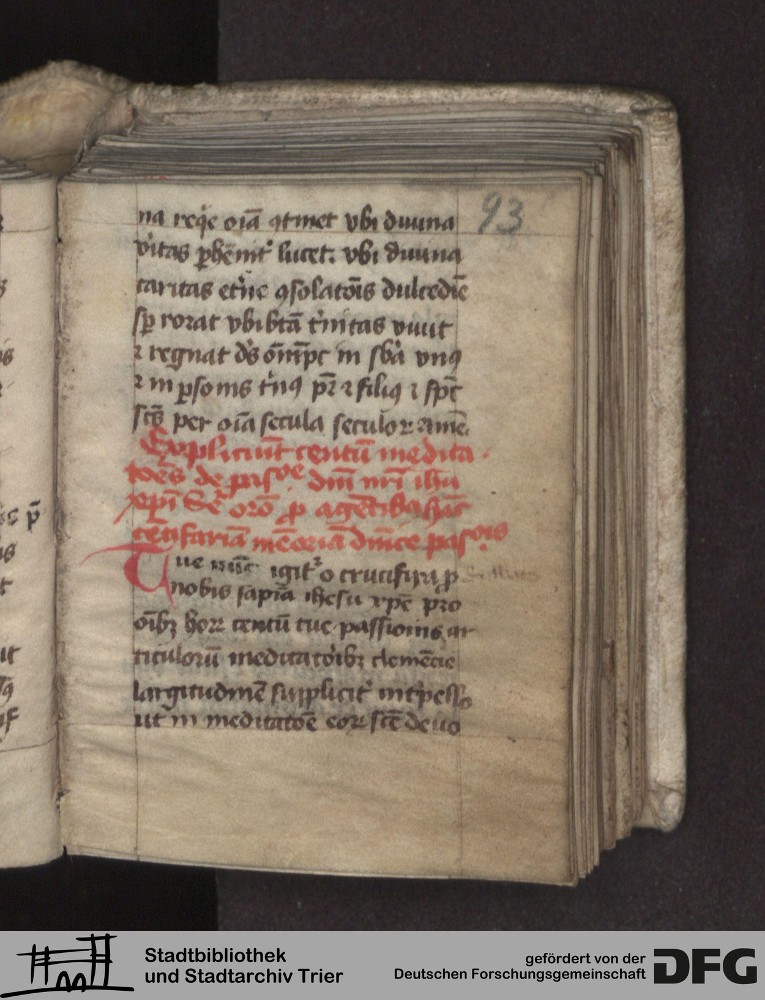 93
na req̄e oīa ꝯtinet vbi diuina
v̓itas ꝑhēnit᷑ lucet. vbi diuina
caritas et̓ne ꝯsolatōis dulcedīe
sꝑ rorat vbi btā t̓nitas viuit
⁊ regnat dꝰs om̄pc in sb̓a vnꝯ
⁊ in ꝑsonis t̓nꝯ pr̄ ⁊ filiꝯ ⁊ spc̄
scs̄ per oīa secula seculoꝝ amē.
Expliciūt centū medita
toēs de pasōe dm̄ nr̄i ihū
xp̄i Se᷑ orō ꝓ agētibꝯ hāc
cētifariā mēoriā dn̄ice pasōis
Tue nūc igit᷑ o crucifixa ꝓ
nobis sapīa ihesu xpē pro
oībꝫ hoꝝ centū tue passionis ar
ticuloꝛū meditatōibꝫ clemēcie
largitudinē suppliciт᷑ int̓pello
ut in meditatōe eoꝝ scē deuo
Stadtbibliothek
und Stadtarchiv Trier
gefördert von der
Deutschen Forschungsgemeinschaft
DFG